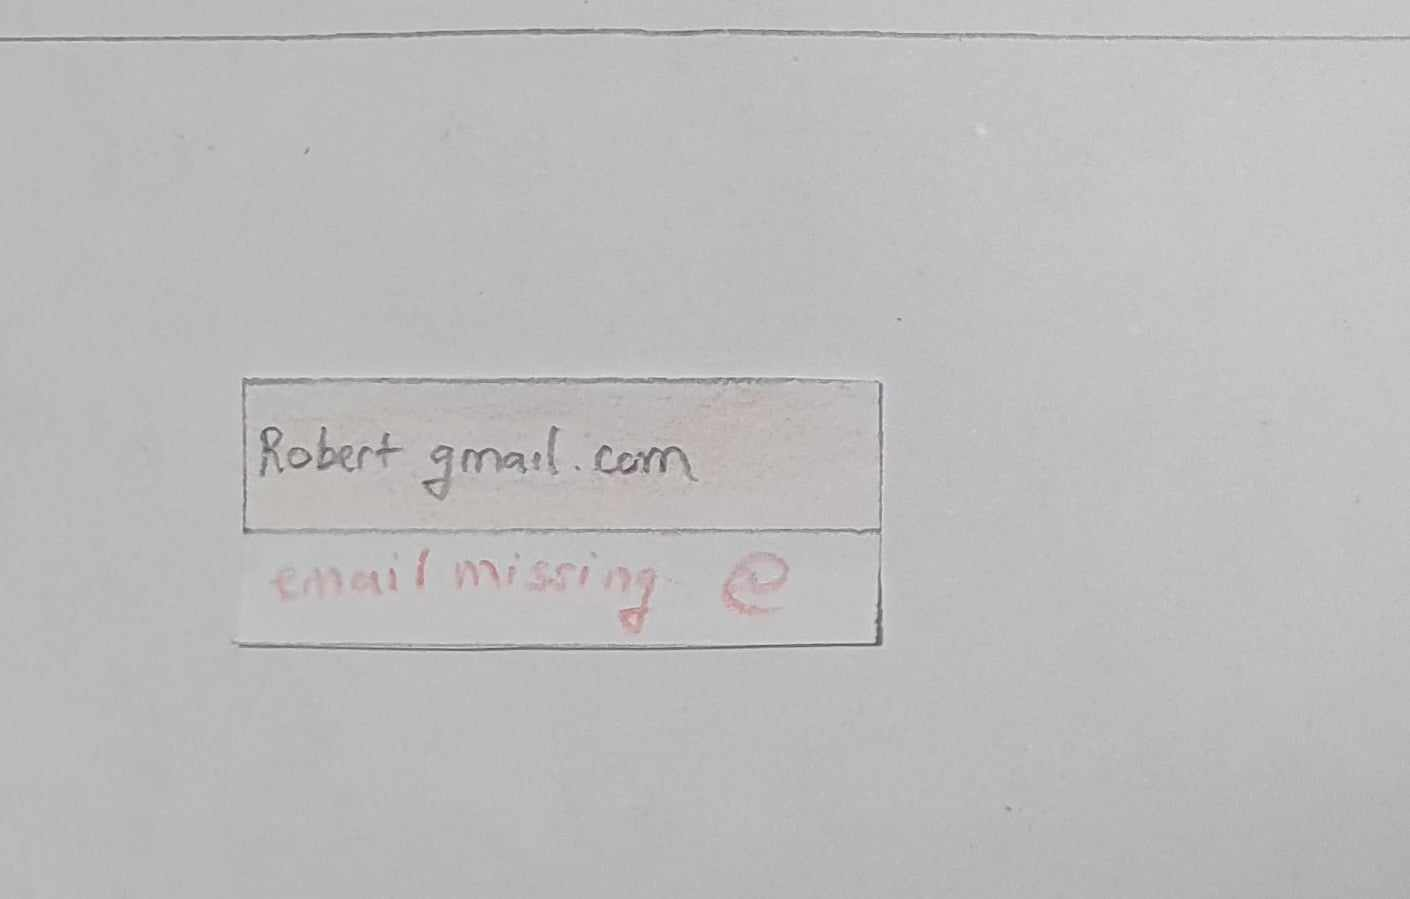 Robert gmail.com
email missing @